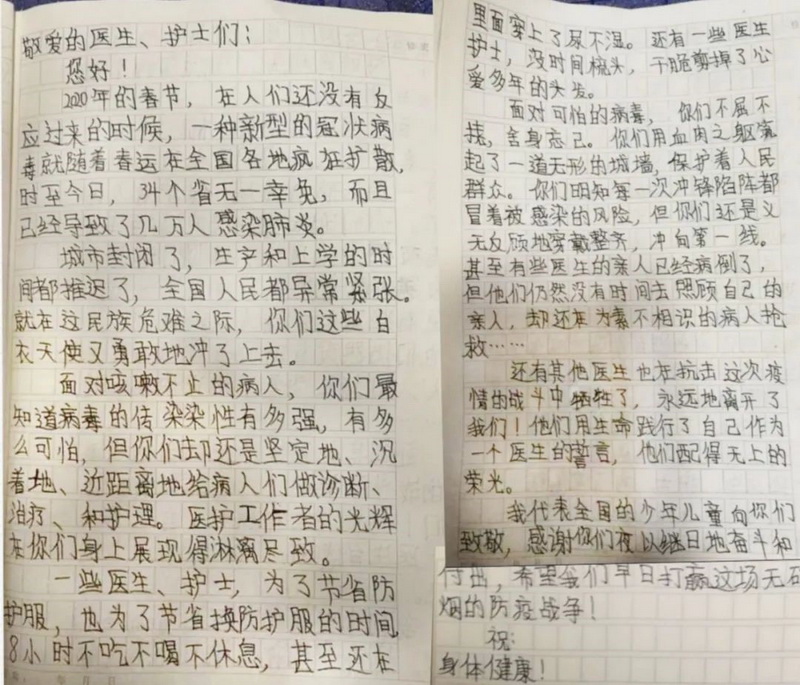 敬爱的医生、护士们:
您好!
2020年的春节,在人们还没有反
应过来的时候,一种新型的冠状病
毒就随着春运在全国各地疯狂扩散,
时至今日,34个省无一幸免,而且
已经导致了几万人感染肺炎。
城市封闭了,生产和上学的时
间都推迟了,全国人民都异常紧张。
就在这民族危难之际,你们这些白
衣天使又勇敢地冲了上去。
面对咳嗽不止的病人,你们最
知道病毒的传染染性有多强,有多
么可怕,但你们却还是坚定地、沉
着地、近距离地给病人们做诊断、
治疗、和护理。医护工作者的光辉
在你们身上展现得淋漓尽致。
一些医生、护士,为了节省防
护服,也为了节省换防护服的时间,
8小时不吃不喝不休息,甚至还在
里面穿上了尿不湿。还有一些医生
护士,没时间梳头,干脆剪掉了心
爱多年的头发。
面对可怕的病毒,你们不屈不
挠,舍身忘己。你们用血肉之躯筑
起了一道无形的城墙,保护着人民
群众。你们明知每一次冲锋陷阵都
冒着被感染的风险,但你们还是义
无反顾地穿戴整齐,冲向第一线。
甚至有些医生的亲人已经病倒了,
但他们仍然没有时间去照顾自己的
亲人,却还在为素不相识的病人抢
救……
还有其他医生也在抗击这次疫
情的战斗中牺牲了,永远地离开了
我们!他们用生命践行了自己作为
一个医生的誓言,他们配得无上的
荣光。
我代表全国的少年儿童向你们
致敬,感谢你们夜以继日地奋斗和
付出,希望我们早日打赢这场无硝
烟的防疫战争!
祝:
身体健康!